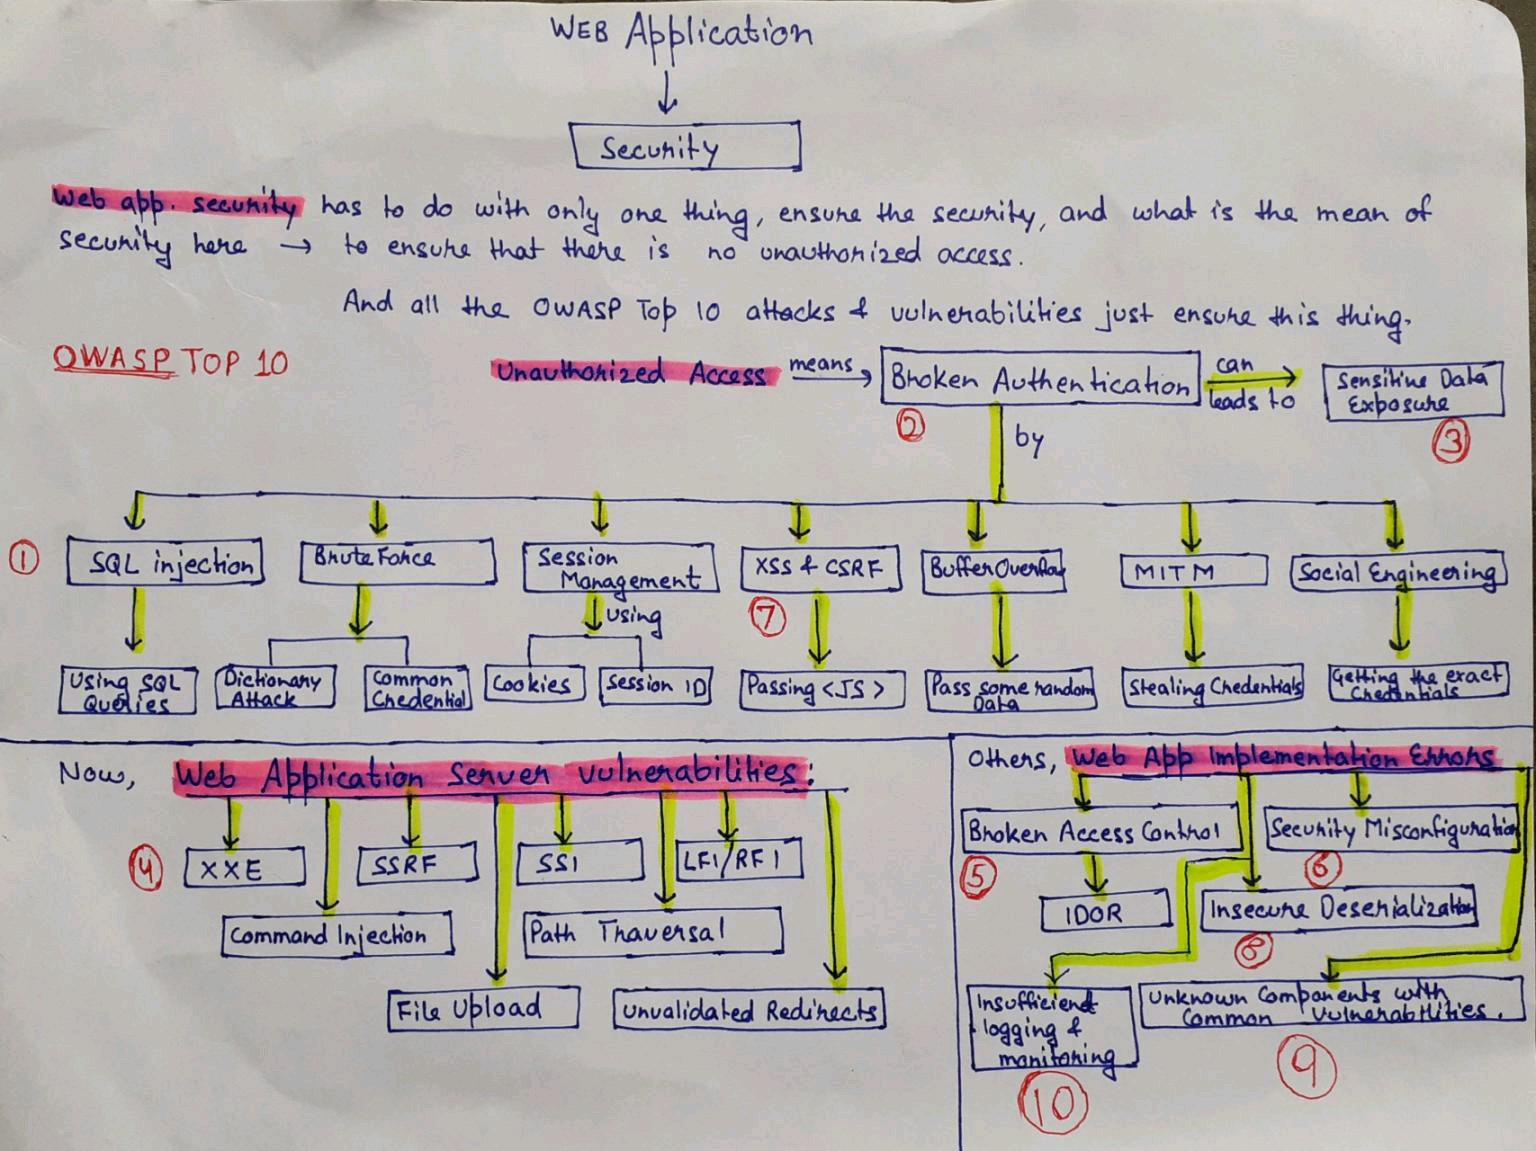 WEB Application
Security
Web app. security has to do with only one thing, ensure the security, and what is the mean of
security here → to ensure that there is no unauthorized access.
And all the OWASP Top 10 attacks & vulnerabilities just ensure this thing.
OWASP TOP 10
Unauthorized Access means → Broken Authentication can leads to → Sensitive Data
Exposure
2
3
by
1
SQL injection
Brute Force
Session
Management
XSS & CSRF
Buffer Overflow
MITM
Social Engineering
7
using
Using SQL
Queries
Dictionary
Attack
Common
Credential
Cookies
Session ID
Passing <JS>
Pass some random
Data
Stealing Credentials
Getting the exact
Credentials
Now, Web Application Server vulnerabilities:
4
XXE
SSRF
SSI
LFI/RFI
Command Injection
Path Traversal
File Upload
Unvalidated Redirects
Others, Web App Implementation Errors
Broken Access Control
Security Misconfiguration
5
6
IDOR
Insecure Deserialization
8
Insufficient
logging &
monitoring
Unknown Components with
Common Vulnerabilities.
10
9